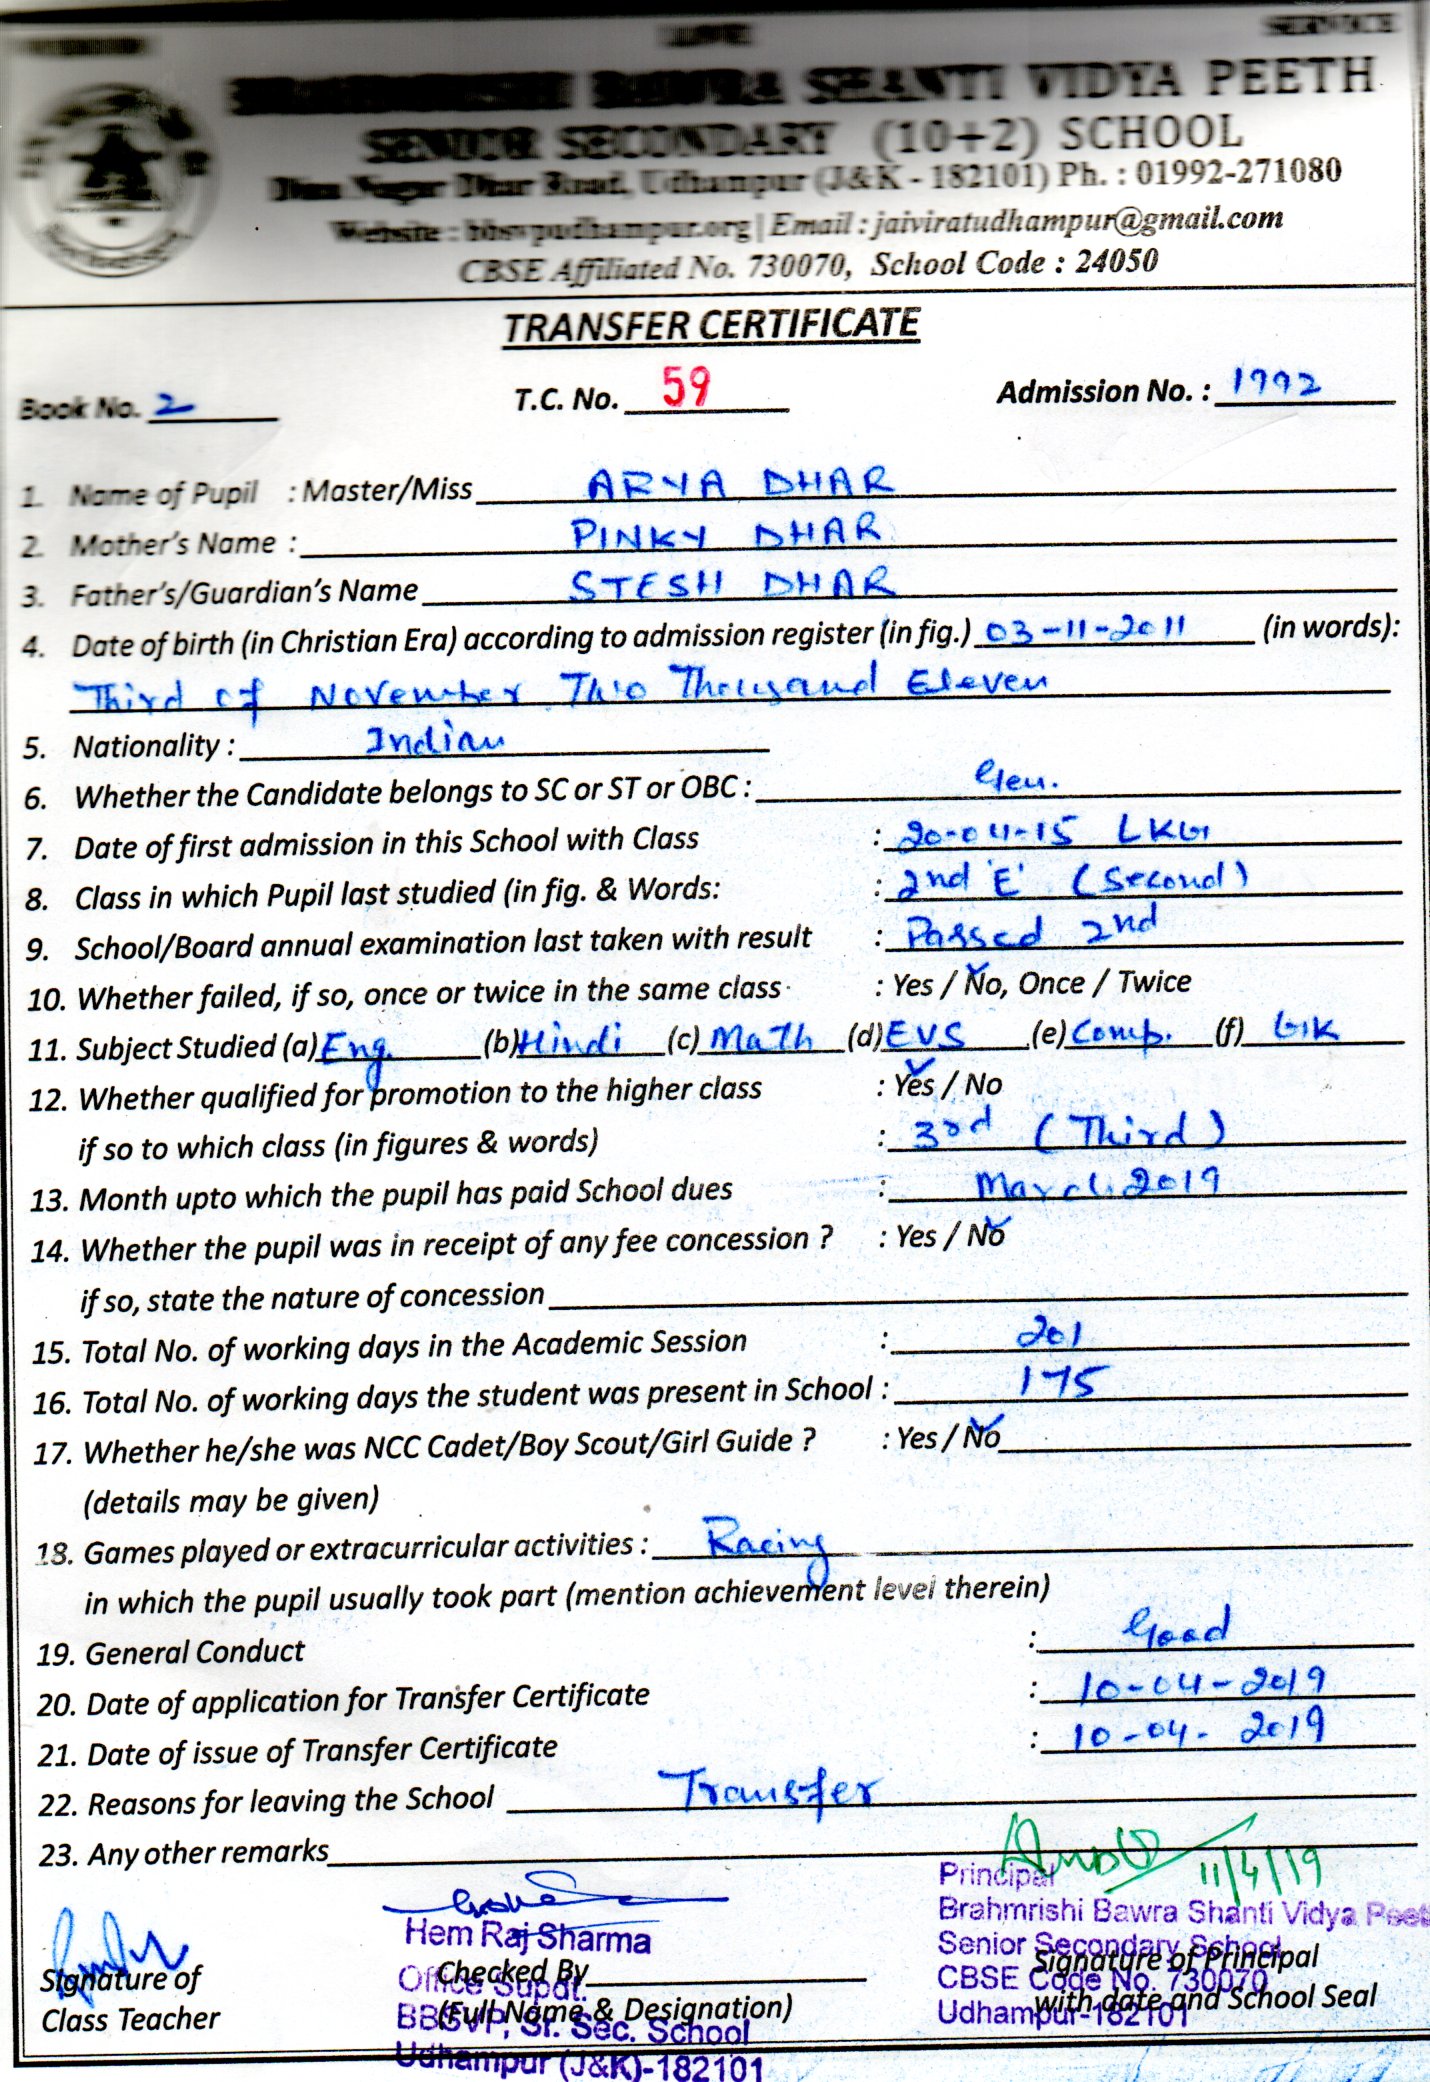 SERVICE
BRAHMRISHI BAWRA SHANTI VIDYA PEETH
SENIOR SECONDARY (10+2) SCHOOL
Dhar Road, Udhampur (J&K - 182101) Ph. : 01992-271080
Website : bbsvpudhampur.org | Email : jaiviratudhampur@gmail.com
CBSE Affiliated No. 730070, School Code : 24050
TRANSFER CERTIFICATE
Book No. 2 T.C. No. 59 Admission No. : 1992
1. Name of Pupil : Master/Miss ARYA DHAR
2. Mother's Name : PINKY DHAR
3. Father's/Guardian's Name STESH DHAR
4. Date of birth (in Christian Era) according to admission register (in fig.) 03-11-2011 (in words):
Third of November Two Thousand Eleven
5. Nationality : Indian
6. Whether the Candidate belongs to SC or ST or OBC : Gen.
7. Date of first admission in this School with Class : 20-04-15 LKG
8. Class in which Pupil last studied (in fig. & Words: : 2nd 'E' (Second)
9. School/Board annual examination last taken with result : Passed 2nd
10. Whether failed, if so, once or twice in the same class : Yes / No, Once / Twice
11. Subject Studied (a) Eng. (b) Hindi (c) Math (d) EVS (e) Comp. (f) GK
12. Whether qualified for promotion to the higher class : Yes / No
if so to which class (in figures & words) : 3rd (Third)
13. Month upto which the pupil has paid School dues : March 2019
14. Whether the pupil was in receipt of any fee concession ? : Yes / No
if so, state the nature of concession
15. Total No. of working days in the Academic Session : 201
16. Total No. of working days the student was present in School : 175
17. Whether he/she was NCC Cadet/Boy Scout/Girl Guide ? : Yes / No
(details may be given)
18. Games played or extracurricular activities : Racing
in which the pupil usually took part (mention achievement level therein)
19. General Conduct : Good
20. Date of application for Transfer Certificate : 10-04-2019
21. Date of issue of Transfer Certificate : 10-04-2019
22. Reasons for leaving the School Transfer
23. Any other remarks
11/4/19
Principal
Brahmrishi Bawra Shanti Vidya Peet
Senior Secondary School
CBSE Code No. 730070
Udhampur-182101
Signature of Principal
with date and School Seal
Hem Raj Sharma
Office Supdt.
BBSVP, Sr. Sec. School
Udhampur (J&K)-182101
Checked By
(Full Name & Designation)
Signature of
Class Teacher